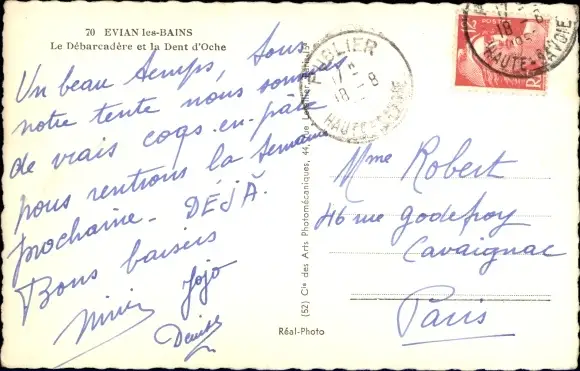 70 EVIAN les-BAINS
Le Débarcadère et la Dent d'Oche
Un beau temps, sous
notre tente nous sommes
de vrais coqs-en-pâte
nous rentrons la semaine
prochaine - DÉJÀ.
Bons baisers
Jojo
Denise
PUBLIER
17 8
18
HAUTE-SAVOIE
POSTE
17 8
18
HAUTE-SAVOIE
(52) Cie des Arts Photomécaniques, 44, rue
Réal-Photo
Mme Robert
46 rue Godefroy
Cavaignac
Paris